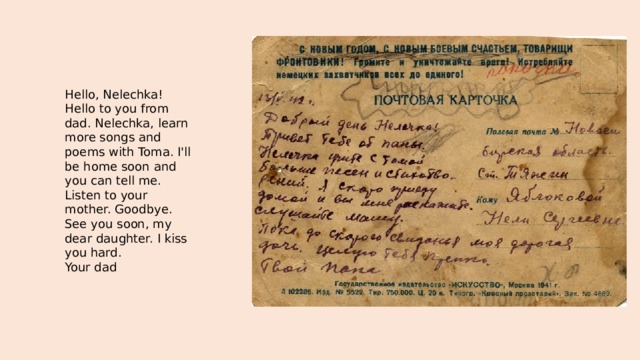 Hello, Nelechka!
Hello to you from
dad. Nelechka, learn
more songs and
poems with Toma. I'll
be home soon and
you can tell me.
Listen to your
mother. Goodbye.
See you soon, my
dear daughter. I kiss
you hard.
Your dad
С НОВЫМ ГОДОМ, С НОВЫМ БОЕВЫМ СЧАСТЬЕМ, ТОВАРИЩИ
ФРОНТОВИКИ! Громите и уничтожайте врага! Истребляйте
немецких захватчиков всех до единого!
ПОЧТОВАЯ КАРТОЧКА
Добрый день Нелечка!
Привет тебе от папы.
Нелечка учите с Томой
больше песен и стихотво-
рений. Я скоро приеду
домой и вы мне расскажете.
Слушайте маму.
Пока, до скорого свиданья моя дорогая
дочь. Целую тебя крепко.
Твой папа
Полевая почта № Новоси
бирская область.
Ст.
Кому Яблоковой
Нели Сергеевне
Государственное издательство «ИСКУССТВО», Москва 1941 г.
Изд. № 5529. Тир. 750.000. Ц. 20 к. Типогр. «Красный пролетарий». Зак. № 4669.